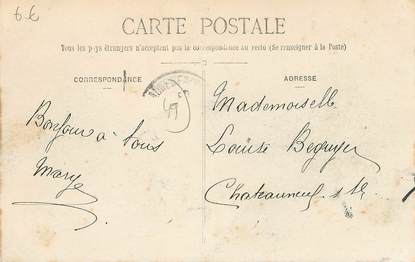 6€
CARTE POSTALE
Tous les pays étrangers n'acceptent pas la correspondance au recto (Se renseigner à la Poste)
CORRESPONDANCE
ADRESSE
Bonjour à tous
Mary
Mademoiselle
Louise
Chateauneuf s/